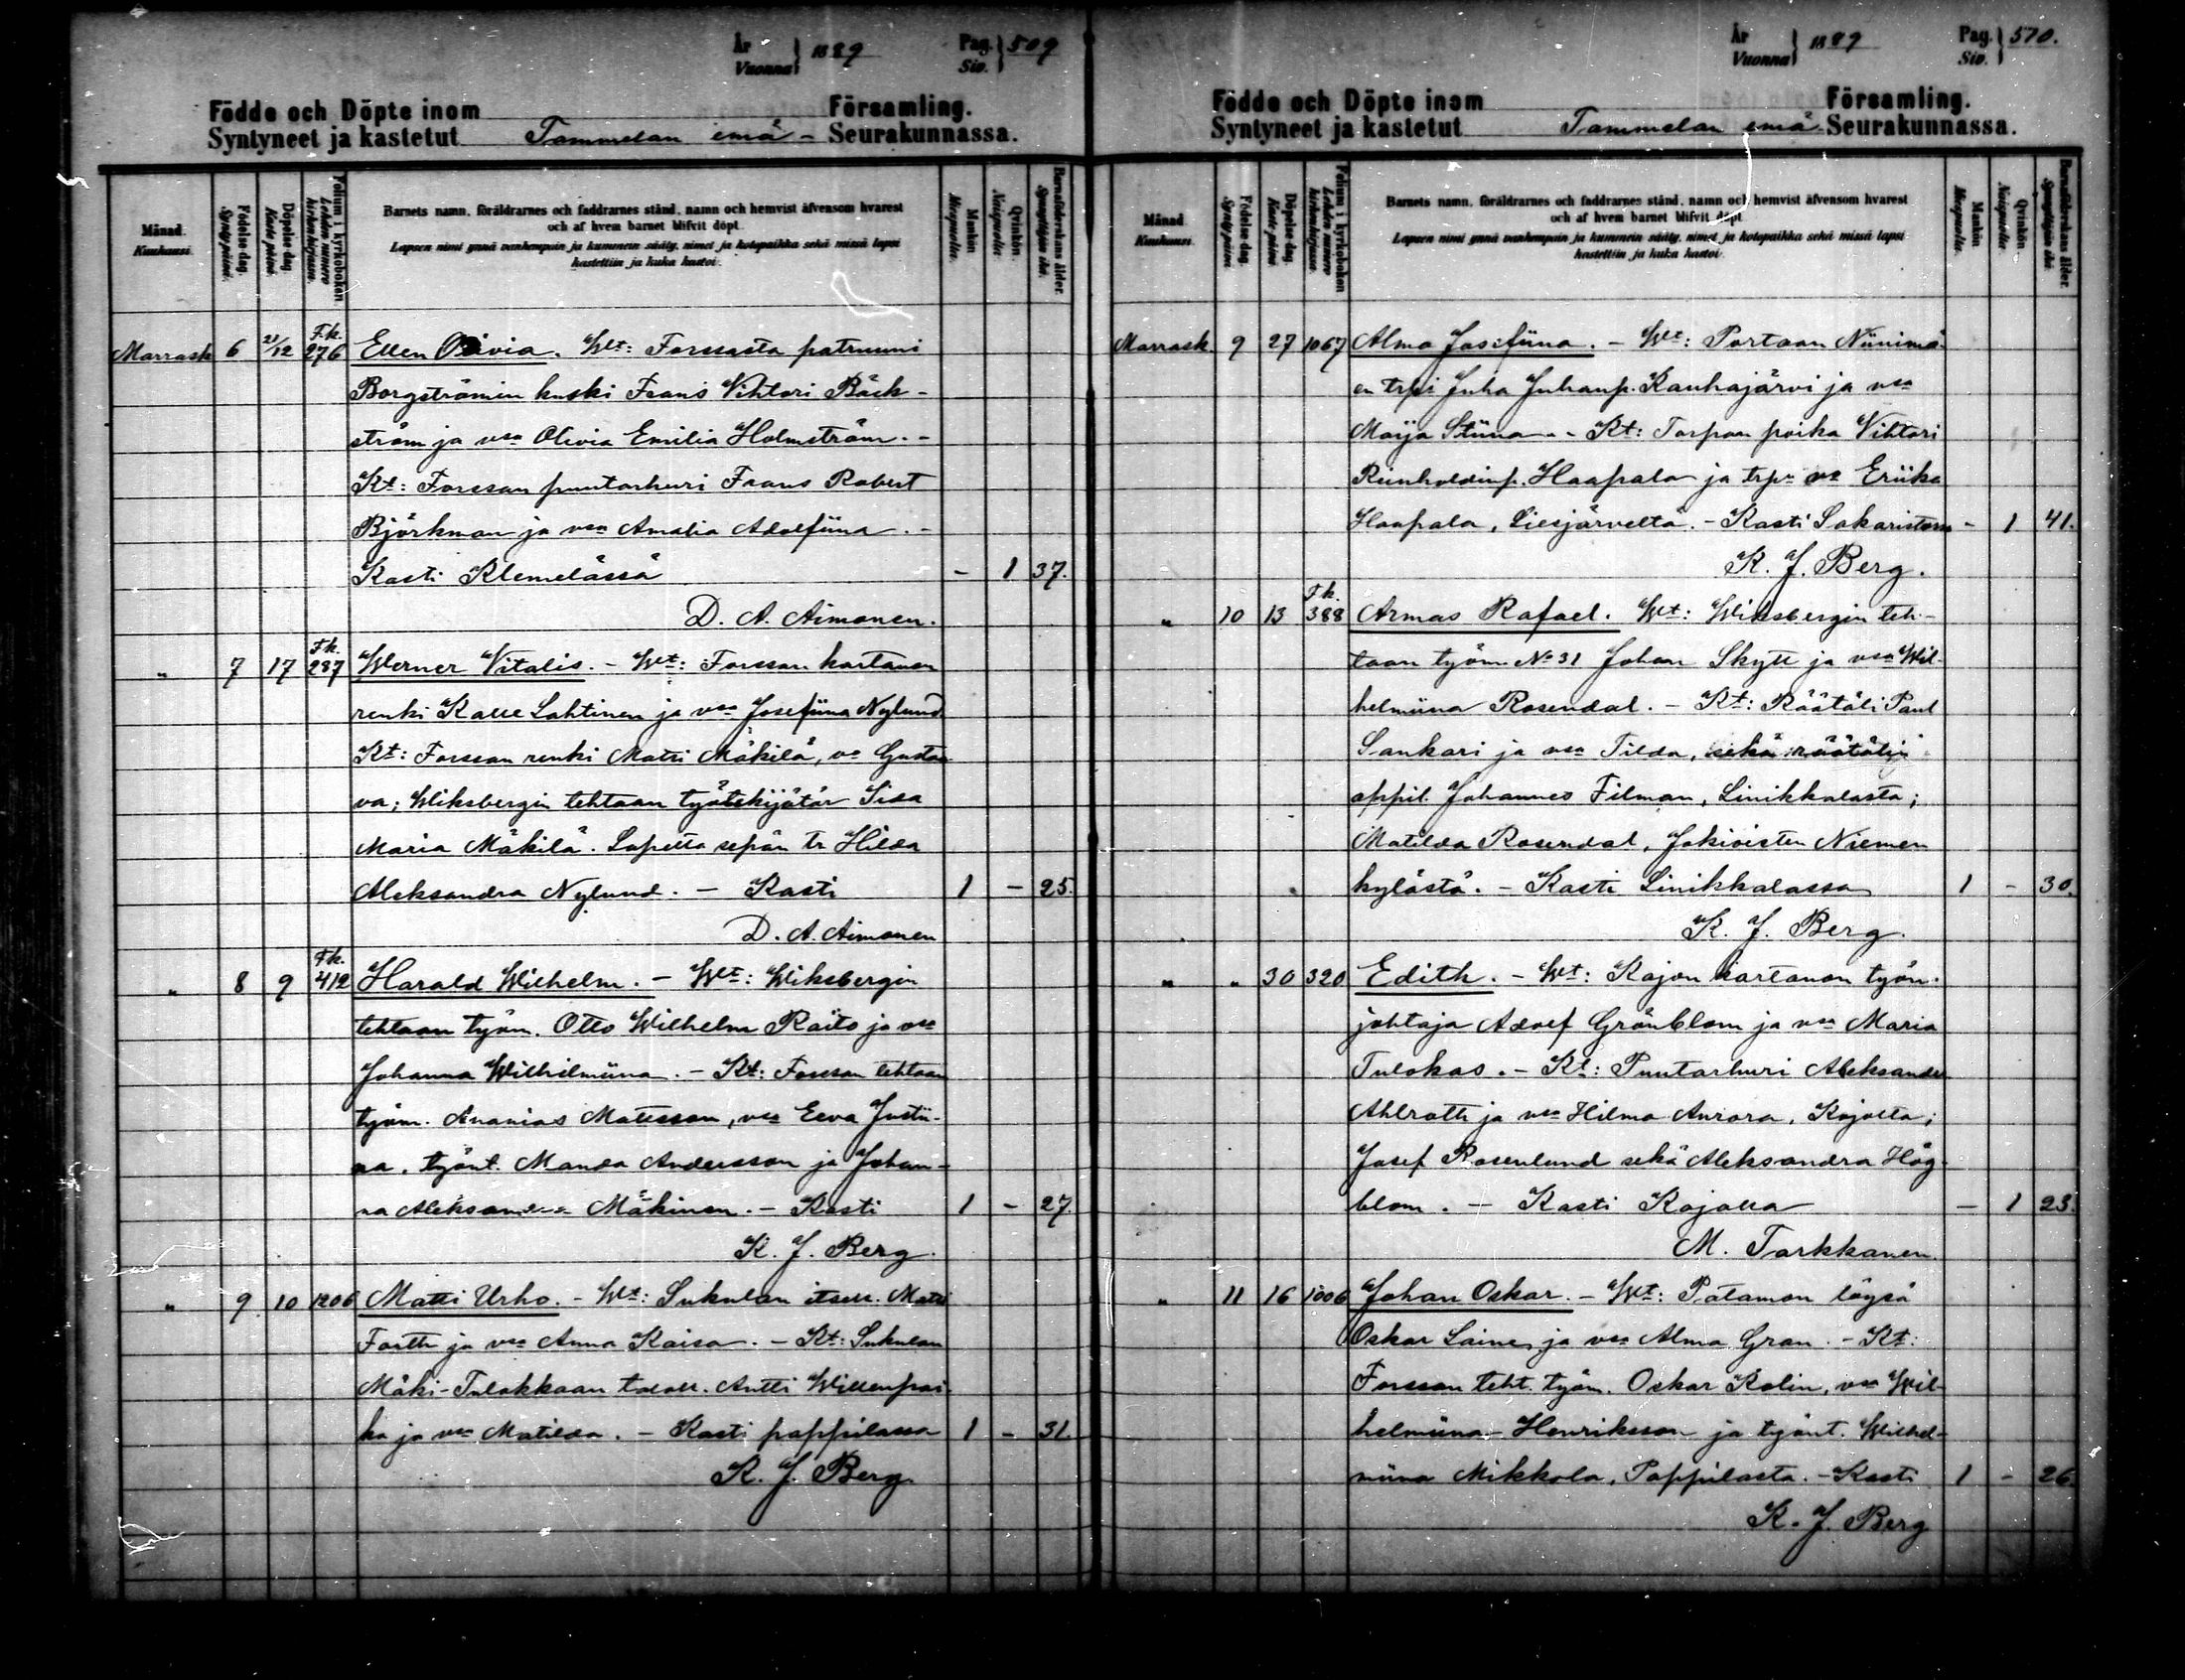 År
Vuonna } 1889
Pag.
Siv. } 509
Födde och Döpte inom Församling.
Syntyneet ja kastetut Tammelan emä- Seurakunnassa.
Månad.
Kuukausi.
Födelse dag.
Syntypäivä.
Döpelse dag
Kaste päivä.
Folium i kyrkoboken
Lehden numero
kirkonkirjassa.
Barnets namn, föräldrarnes och faddrarnes stånd, namn och hemvist äfvensom hvarest
och af hvem barnet blifvit döpt.
Lapsen nimi ynnä vanhempain ja kummein sääty, nimet ja kotopaikka sekä missä lapsi
kastettiin ja kuka kastoi.
Mankön
Miespuolta.
Qvinkön.
Naispuolta.
Barnaföderskans ålder.
Synnyttäjän ikä.
Marrask 6 21/12 F.k. 276 Ellen Olivia. Wt: Forssasta patruuni
Borgströmin kuski Frans Vihtori Bäck-
ström ja vsa Olivia Emilia Holmström. -
Kt: Forssan puutarhuri Frans Robert
Björkman ja vsa Amalia Adolfiina. -
Kasti Klemelässä - 1 37.
D. A. Aimonen.
" 7 17 F.k. 287 Werner Vitalis. - Wt: Forssan kartanon
renki Kalle Lahtinen ja vsa Josefiina Nylund.
Kt: Forssan renki Matti Mäkilä, va Gustaa-
va; Wiksbergin tehtaan työtekijätär Iida
Maria Mäkilä. sepän tr Hilda
Aleksandra Nylund. - Kasti 1 - 25.
D. A. Aimonen
" 8 9 F.k. 412 Harald Wilhelm. - Wt: Wiksbergin
tehtaan työm. Otto Wilhelm Raito ja vsa
Johanna Wilhelmiina. - Kt: Forssan tehtaan
työm. Ananias Matsson, vsa Eeva Justii-
na, työnt. Manda Andersson ja Johan-
na Aleksandra Mäkinen. - Kasti 1 - 27.
K. J. Berg.
" 9 10 1206 Matti Urho. - Wt: Sukulan itsell. Matti
Forth ja vsa Anna Kaisa. - Kt: Sukulan
Mäki-Tulokkaan taloll. Antti Willenpoi-
ka ja vsa Matilda. - Kasti pappilassa 1 - 31.
K. J. Berg.
År
Vuonna } 1889
Pag.
Siv. } 510.
Födde och Döpte inom Församling.
Syntyneet ja kastetut Tammelan emä- Seurakunnassa.
Månad
Kuukausi.
Födelse dag.
Syntypäivä
Döpelse dag.
Kaste päivä
Folium i kyrkoboken
Lehden numero
kirkonkirjassa.
Barnets namn, föräldrarnes och faddrarnes stånd, namn och hemvist äfvensom hvarest
och af hvem barnet blifvit döpt.
Lapsen nimi ynnä vanhempain ja kummein sääty, nimet ja kotopaikka sekä missä lapsi
kastettiin ja kuka kastoi.
Mankön
Miespuolta.
Qvinkön
Naispuolta.
Barnaföderskans ålder.
Synnyttäjän ikä.
Marrask. 9 27 1067 Alma Josefiina. - Wt: Portaan Niinimä-
en trpi Juha Juhanp. Kauhajärvi ja vsa
Maija Stiina. - Kt: Torpan poika Vihtori
Reinholdinp. Haapala ja trpn va Eriika
Haapala, Liesjärveltä. - Kasti Sakaristossa - 1 41.
K. J. Berg.
" 10 13 F.k. 388 Armas Rafael. Wt: Wiksbergin teh-
taan työm No 31 Johan Skytt ja vsa Wil-
helmiina Rosendal. - Kt: Räätäli Paul
Sankari ja vsa Tilda, sekä räätälin
oppil. Johannes Filman, Linikkalasta;
Matilda Rosendal, Jokioisten Niemen
kylästä. - Kasti Linikkalassa 1 - 30.
K. J. Berg.
" " 30 320 Edith. - Wt: Kojon kartanon työn-
johtaja Adolf Grönblom ja vsa Maria
Tulokas. - Kt: Puutarhuri Aleksander
Ahlroth ja vsa Hilma Aurora, Kojolta;
Josef Rosenlund sekä Aleksandra Hög-
blom. - Kasti Kojolla - 1 23.
M. Tarkkanen.
" 11 16 1006 Johan Oskar. - Wt: Patamon löysä
Oskar Laine ja vsa Alma Gran. - Kt:
Forssan teht. työm. Oskar Kolin, vsa Wil-
helmiina Henriksson ja työnt. Wilhel-
miina Mikkola, Pappilasta. - Kasti 1 - 26.
K. J. Berg